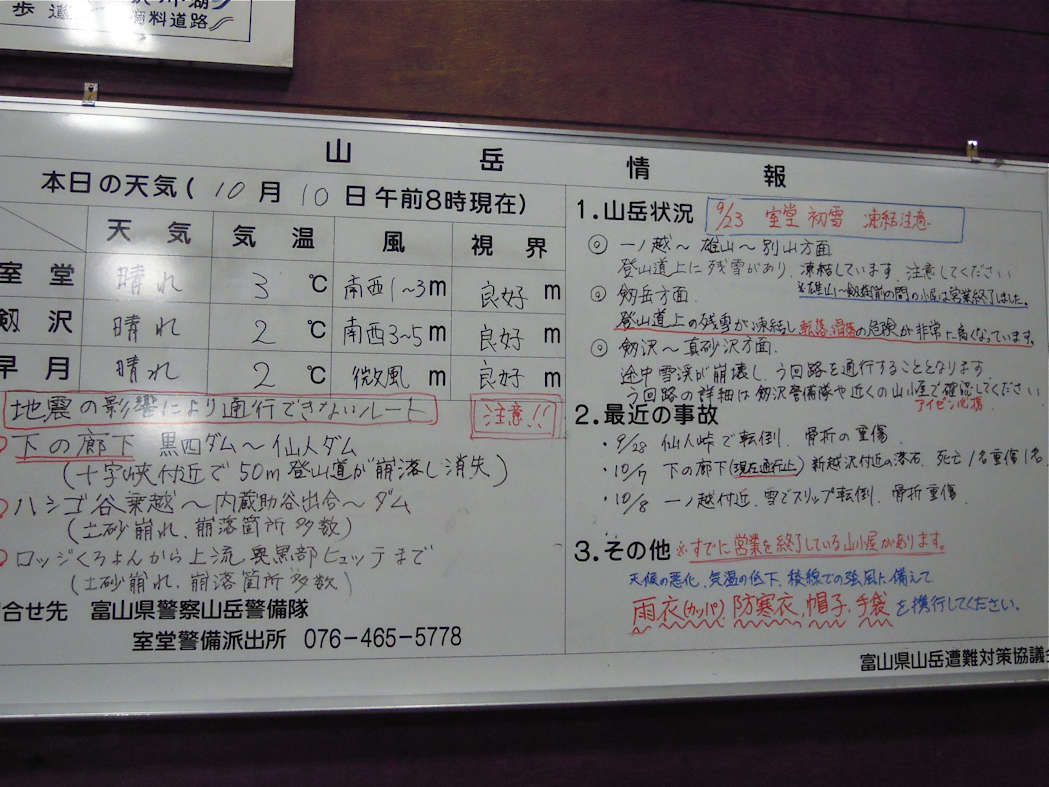 歩道
有料道路
山岳情報
本日の天気( 10月10日午前8時現在)
天気 気温 風 視界
室堂 晴れ 3℃ 南西1~3m 良好m
剱沢 晴れ 2℃ 南西3~5m 良好m
早月 晴れ 2℃ 微風m 良好m
地震の影響により通行できないルート 注意!!
下の廊下 黒四ダム~仙人ダム
(十字峡付近で50m登山道が崩落し消失)
ハシゴ谷乗越~内蔵助谷出合~ダム
(土砂崩れ、崩落箇所多数)
ロッジくろよんから上流、奥黒部ヒュッテまで
(土砂崩れ、崩落箇所多数)
合せ先 富山県警察山岳警備隊
室堂警備派出所 076-465-5778
1.山岳状況 9/23 室堂 初雪 凍結注意
◎ 一ノ越~雄山~別山方面
登山道上に残雪があり、凍結しています。注意してください
※雄山~剱御前の間の小屋は営業終了しました。
◎ 剱岳方面.
登山道上の残雪が凍結し、転落、滑落の危険が非常に高くなっています。
◎ 剱沢~真砂沢方面.
途中雪渓が崩壊し、う回路を通行することとなります
う回路の詳細は剱沢警備隊や近くの山小屋で確認してください
アイゼン必携
2.最近の事故
・9/28 仙人峠で転倒、骨折の重傷.
・10/7 下の廊下(現在通行止) 新越沢付近の落石、死亡1名重傷1名
・10/8 一ノ越付近、雪でスリップ転倒、骨折重傷.
3.その他 ※すでに営業を終了している山小屋があります。
天候の悪化、気温の低下、稜線での強風に備えて
雨衣(カッパ)、防寒衣、帽子、手袋を携行してください。
富山県山岳遭難対策協議会